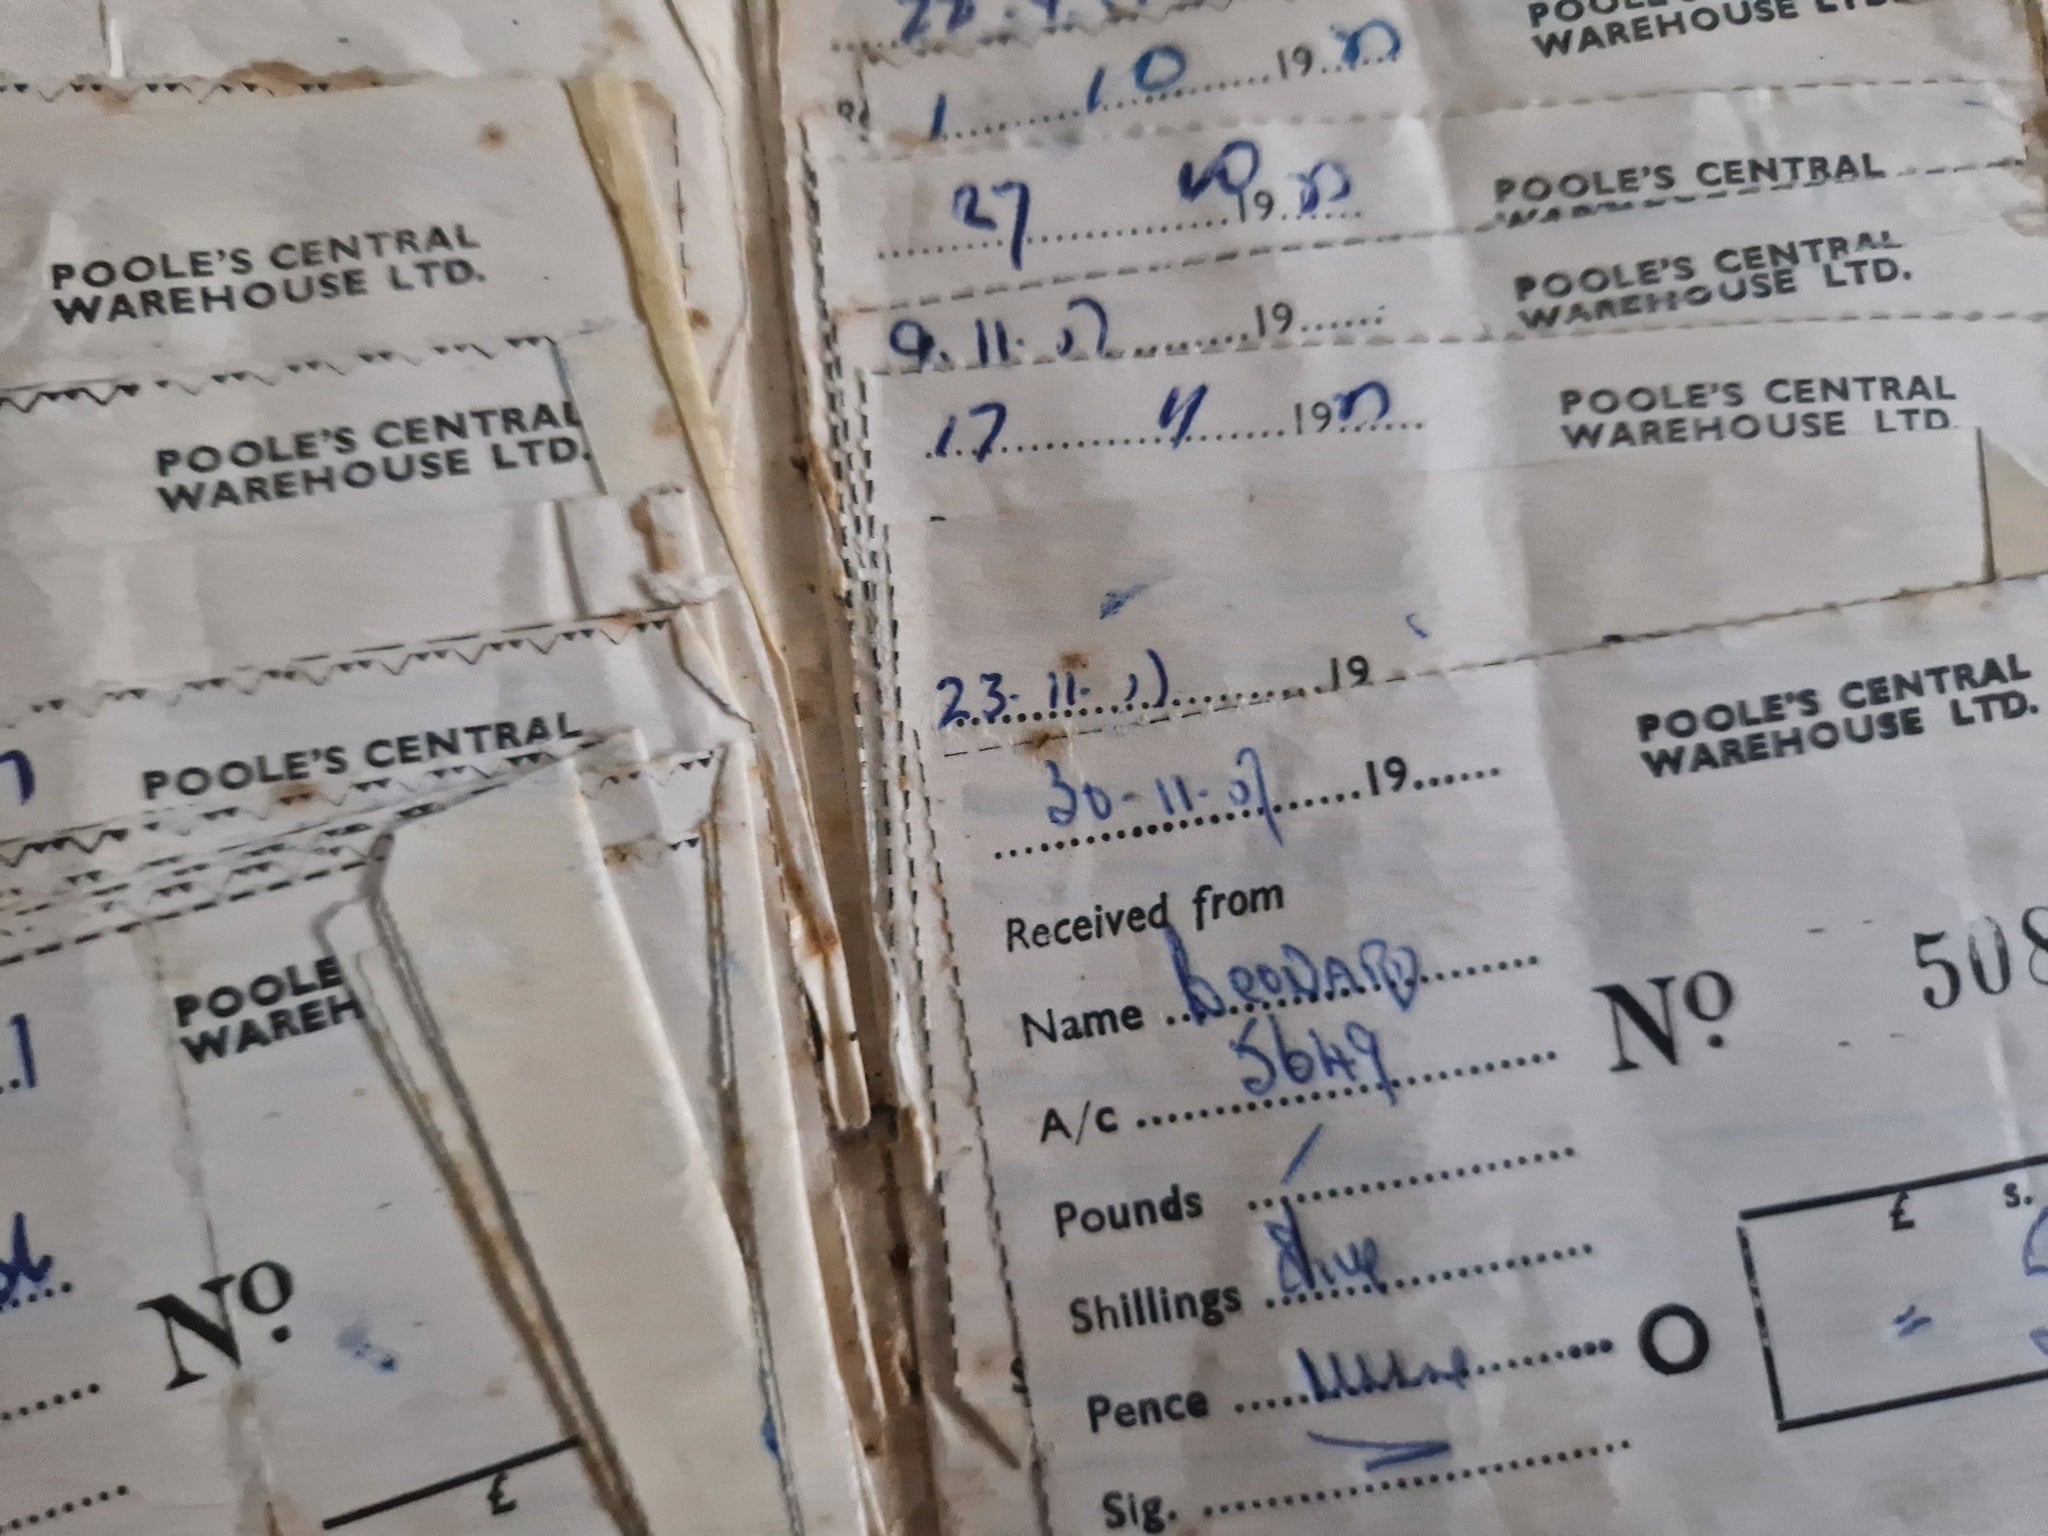 POOLE'S CENTRAL
WAREHOUSE LTD.
POOLE'S CENTRAL
WAREHOUSE LTD.
POOLE'S CENTRAL
POOLE
WAREH
No
£
WAREHOUSE
1 10 19
27 10 19
POOLE'S CENTRAL
9. 11. 19
POOLE'S CENTRAL
WAREHOUSE LTD.
17 11 19
POOLE'S CENTRAL
WAREHOUSE LTD.
23. 11. 19
30 - 11. 19
POOLE'S CENTRAL
WAREHOUSE LTD.
Received from
Name LEONARD
No 508
A/c 5649
Pounds
£ s.
Shillings
Pence
O
Sig.